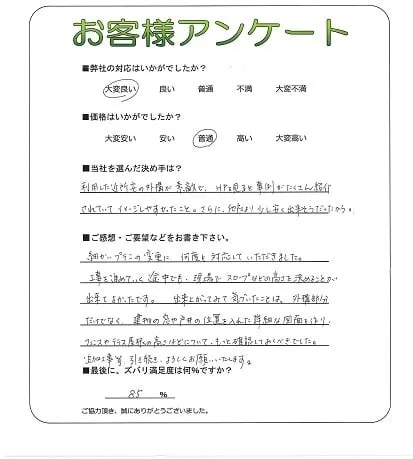 お客様アンケート
■弊社の対応はいかがでしたか？
大変良い 良い 普通 不満 大変不満
■価格はいかがでしたか？
大変安い 安い 普通 高い 大変高い
■当社を選んだ決め手は？
利用した近所宅の外構が素敵で、HPを見ると事例がたくさん紹介
されていてイメージしやすかったこと。さらに、他社より少し安く出来そうだったから。
■ご感想・ご要望などをお書き下さい。
細かいプランの変更に、何度も対応していただきました。
工事を進めていく途中でも、現場でスロープなどの高さを決めることが
出来てよかったです。出来上がってみて気づいたことは、外構部分
だけでなく、建物の窓や戸井の位置を入れた詳細な図面を作り、
フェンスやテラス屋根の高さなどについて、もっと確認しておくべきでした。
追加工事等、引き続き、よろしくお願いいたします。
■最後に、ズバリ満足度は何%ですか？
85 %
ご協力頂き、誠にありがとうございました。